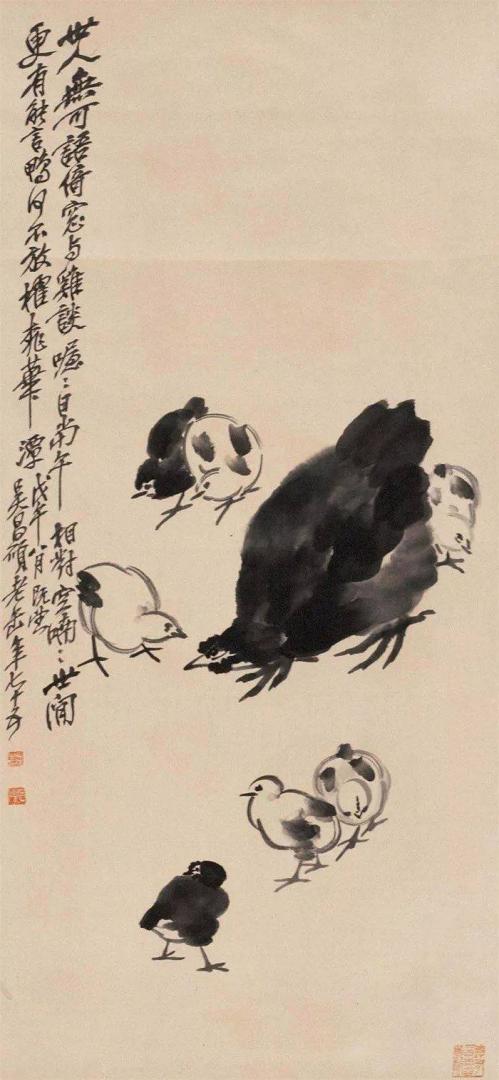 世人無可語倚窓与雞談喔〻日當午相對空喃〻世間
更有能言鴨何不放櫂桃華潭
戊午八月既望
吳昌碩老缶年七十五